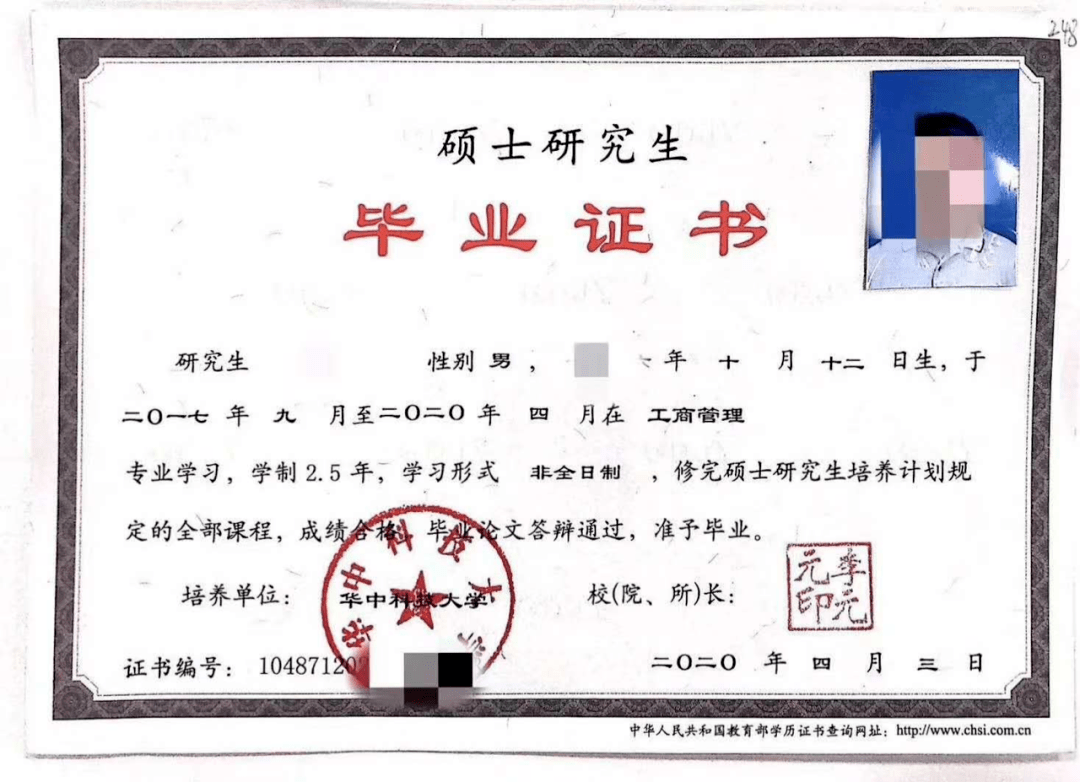 248
硕士研究生
毕业证书
研究生 性别 男 ， 年 十 月 十二 日生，于
二〇一七 年 九 月至二〇二〇年 四 月在 工商管理
专业学习，学制 2.5 年，学习形式 非全日制 ，修完硕士研究生培养计划规
定的全部课程，成绩合格，毕业论文答辩通过，准予毕业。
培养单位： 华中科技大学 校(院、所)长：
华中科技大学
李元元印
证书编号： 104871202 二〇二〇 年 四 月 三 日
中华人民共和国教育部学历证书查询网址：http://www.chsi.com.cn